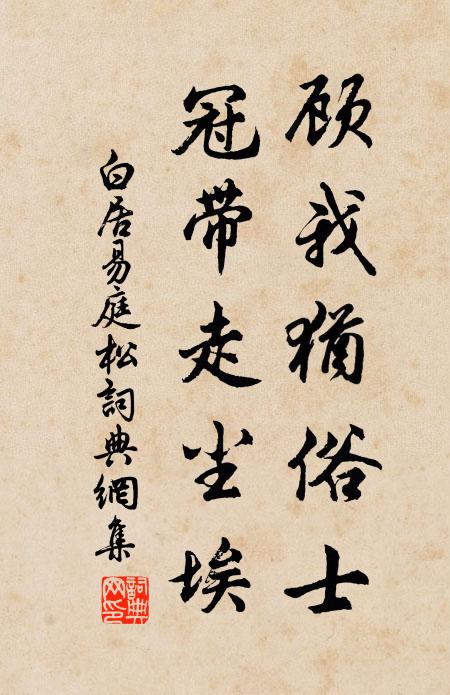 顾我猶俗士
冠带走尘埃
白居易庭松詞典網集
詞典网印